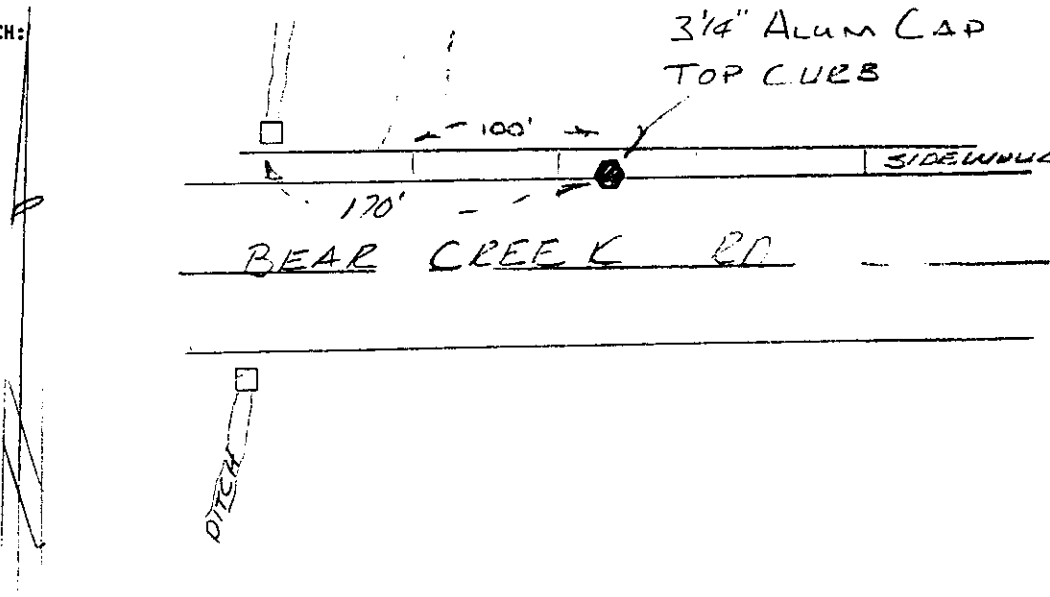 CH:
3¼" ALUM CAP
TOP CURB
100'
SIDEWALK
170'
BEAR CREEK RD
DITCH